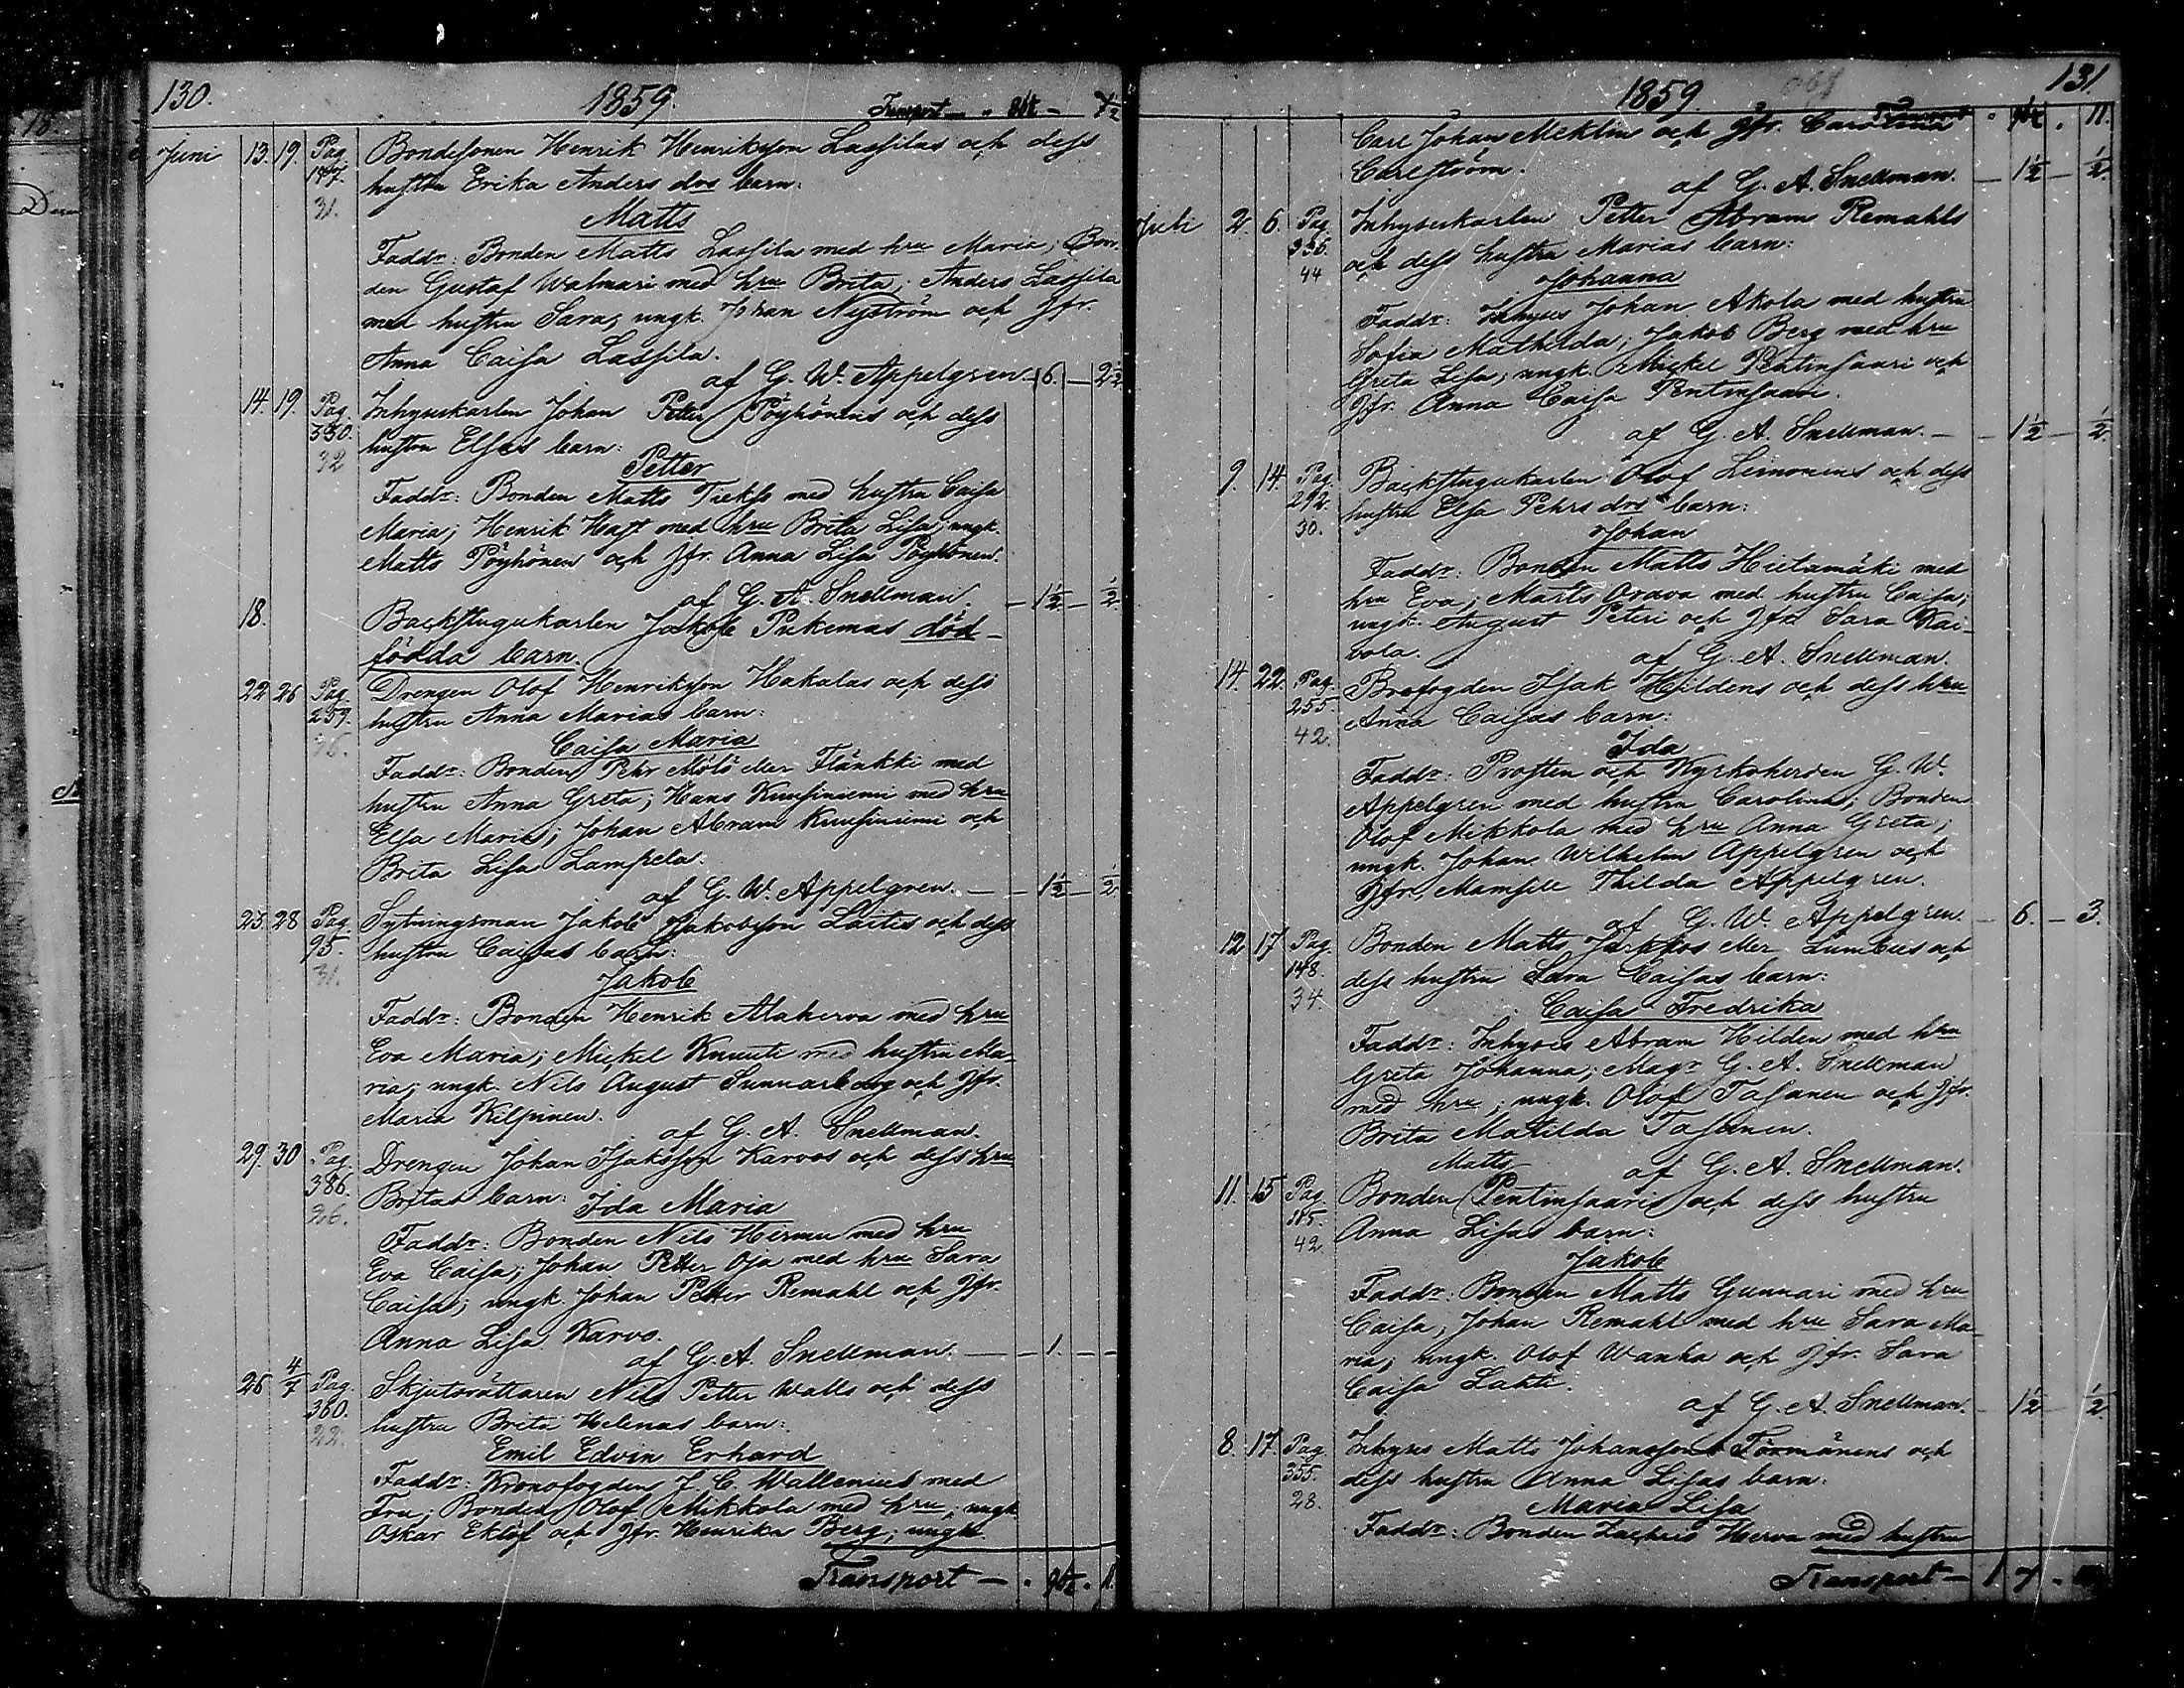 130.
1859.
Transport
Juni 13. 19. Pag. Bondesonen Henrik Henriksson Lassilas och dess
197. hustru Erika Anders dors barn:
31. Matts
Faddr: Bonden Matts Lassila med hru Maria; Bon-
den Gustaf Walmari med hru Brita; Anders Lassila
med hustru Sara; ungk. Johan Nyström och Jfr.
Anna Caisa Lassila.
af G. W. Appelgren 6. — 2½
14. 19. Pag. Inhysekarlen Johan Petter Pöyhönens och dess
330. hustru Elsas barn:
32 Petter
Faddr: Bonden Matts Tiekso med hustru Caisa
Maria; Henrik Hast med hru Brita Lisa; ungk.
Matts Pöyhönen och Jfr. Anna Lisa Pöyhönen.
af G. A. Snellman. — 1½ — ½
18. Backstugukarlen Jakob Pukemas död-
födda barn.
22 26 Pag. Drengen Olof Henriksson Hakalas och dess
259. hustru Anna Marias barn:
36. Caisa Maria
Faddr: Bonden Pehr Mölö eller Flänkki med
hustru Anna Greta; Hans Kuusiniemi med hru
Elsa Maria; Johan Abram Kuusiniemi och
Brita Lisa Lampela.
af G. W. Appelgren. — 1½ — ½
23. 28 Pag. Sytningsman Jakob Jakobsson Laitis och dess
95. hustru Caisas barn:
31. Jakob
Faddr: Bonden Henrik Alaherva med hru
Eva Maria; Mickel Knuuti med hustru Ma-
ria; ungk. Nils August Sunnarborg och Jfr.
Maria Kilpinen.
af G. A. Snellman.
29. 30 Pag. Drengen Johan Isaksson Karvos och dess hru
386. Britas barn: Ida Maria
26.
Faddr: Bonden Nils Hermu med hru
Eva Caisa; Johan Petter Oja med hru Sara
Caisa; ungk. Johan Petter Remahl och Jfr.
Anna Lisa Karvo.
af G. A. Snellman. — 1. —
26 4/7 Pag. Skjutsrättaren Nils Petter Walls och dess
360. hustru Brita Helenas barn:
22. Emil Edvin Erhard
Faddr: Kronofogden J. C. Wallenius med
Fru; Bonden Olof Mikkola med hru; ungk
Oskar Eklöf och Jfr. Henrika Berg; ungk.
Transport — 11.
1859 131.
Transport 11.
Carl Johan Meklin och Jfr. Carolina
Carlström.
af G. A. Snellman. — 1½ — ½
Juli 2. 6. Pag. Inhysekarlen Petter Abram Remahls
336. och dess hustru Marias barn:
44 Johanna
Faddr: Inhyses Johan Akola med hustru
Sofia Mathilda; Jakob Berg med hru
Greta Lisa; ungk. Mickel Pentinsaari och
Jfr. Anna Caisa Pentinsaari.
af G. A. Snellman. — 1½ — ½
9. 14. Pag. Backstugukarlen Olof Leinonens och dess
292. hustru Elsa Pehrs dors barn:
30. Johan
Faddr: Bonden Matts Hietamäki med
hru Eva; Matts Orava med hustru Caisa;
ungk. August Peteri och Jfr. Sara Kai-
vola.
af G. A. Snellman.
14. 22. Pag. Brofogden Isak Hildens och dess hru
255. Anna Caisas barn:
42. Ida
Faddr: Prosten och Kyrkoherden G. W.
Appelgren med hustru Carolina; Bonden
Olof Mikkola med hru Anna Greta;
ungk. Johan Wilhelm Appelgren och
Jfr. Mamsell Thilda Appelgren.
af G. W. Appelgren. — 6. — 3.
12 17 Pag. Bonden Matts Jarkkos eller Lumbus och
148. dess hustru Sara Caisas barn:
34. Caisa Fredrika
Faddr: Inhyses Abram Hilden med hru
Greta Johanna; Magr G. A. Snellman
med hru; ungk. Olof Tasanen och Jfr.
Brita Matilda Tasanen.
af G. A. Snellman.
Matts
11. 15 Pag. Bonden Pentinsaaris och dess hustru
Anna Lisas barn:
42. Jakob
Faddr: Bonden Matts Gunnari med hru
Caisa; Johan Remahl med hru Sara Ma-
ria; ungk. Olof Wanha och Jfr. Sara
Caisa Lahti.
af G. A. Snellman. — 1½ — ½
8. 17. Pag. Inhyses Matts Johansson Törmänens och
355. dess hustru Anna Lisas barn:
28. Maria Lisa
Faddr: Bonden Zachris Herva med hustru
Transport — 1. 7.